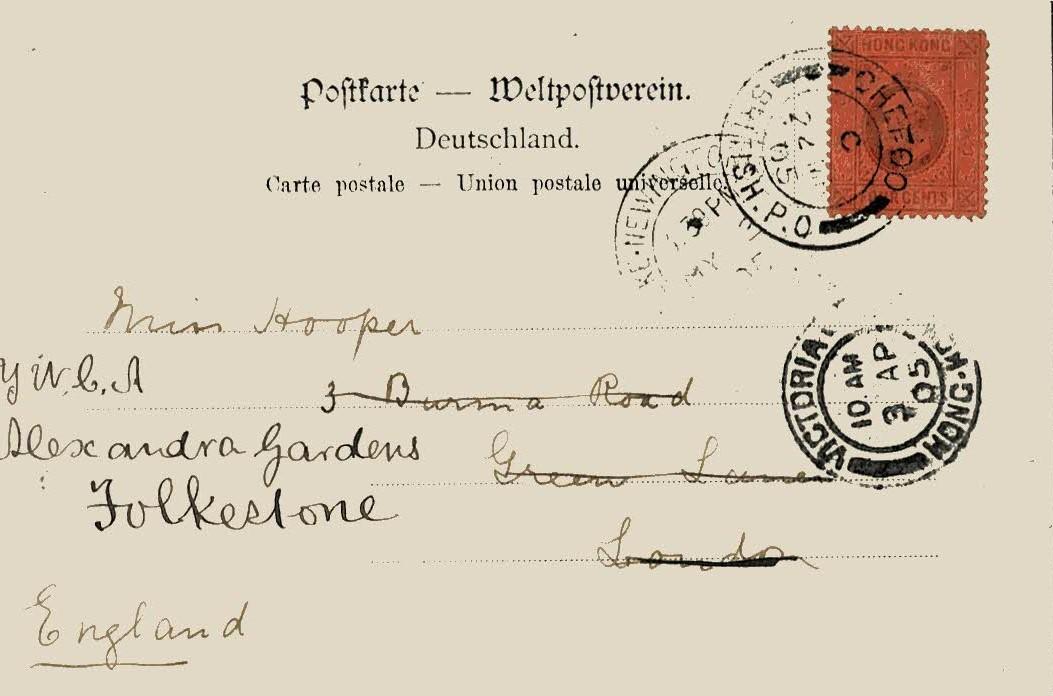 HONG KONG
FOUR CENTS
Postkarte — Weltpostverein.
Deutschland.
Carte postale — Union postale universelle.
BRITISH. P. O
CHEFOO
30 PM
MY
Miss Hooper
Y W. C. A
3 Burma Road
Alexandra Gardens
Green Lanes
Folkestone
London
England
VICTORIA
HONG-KONG
10 AM
AP
05